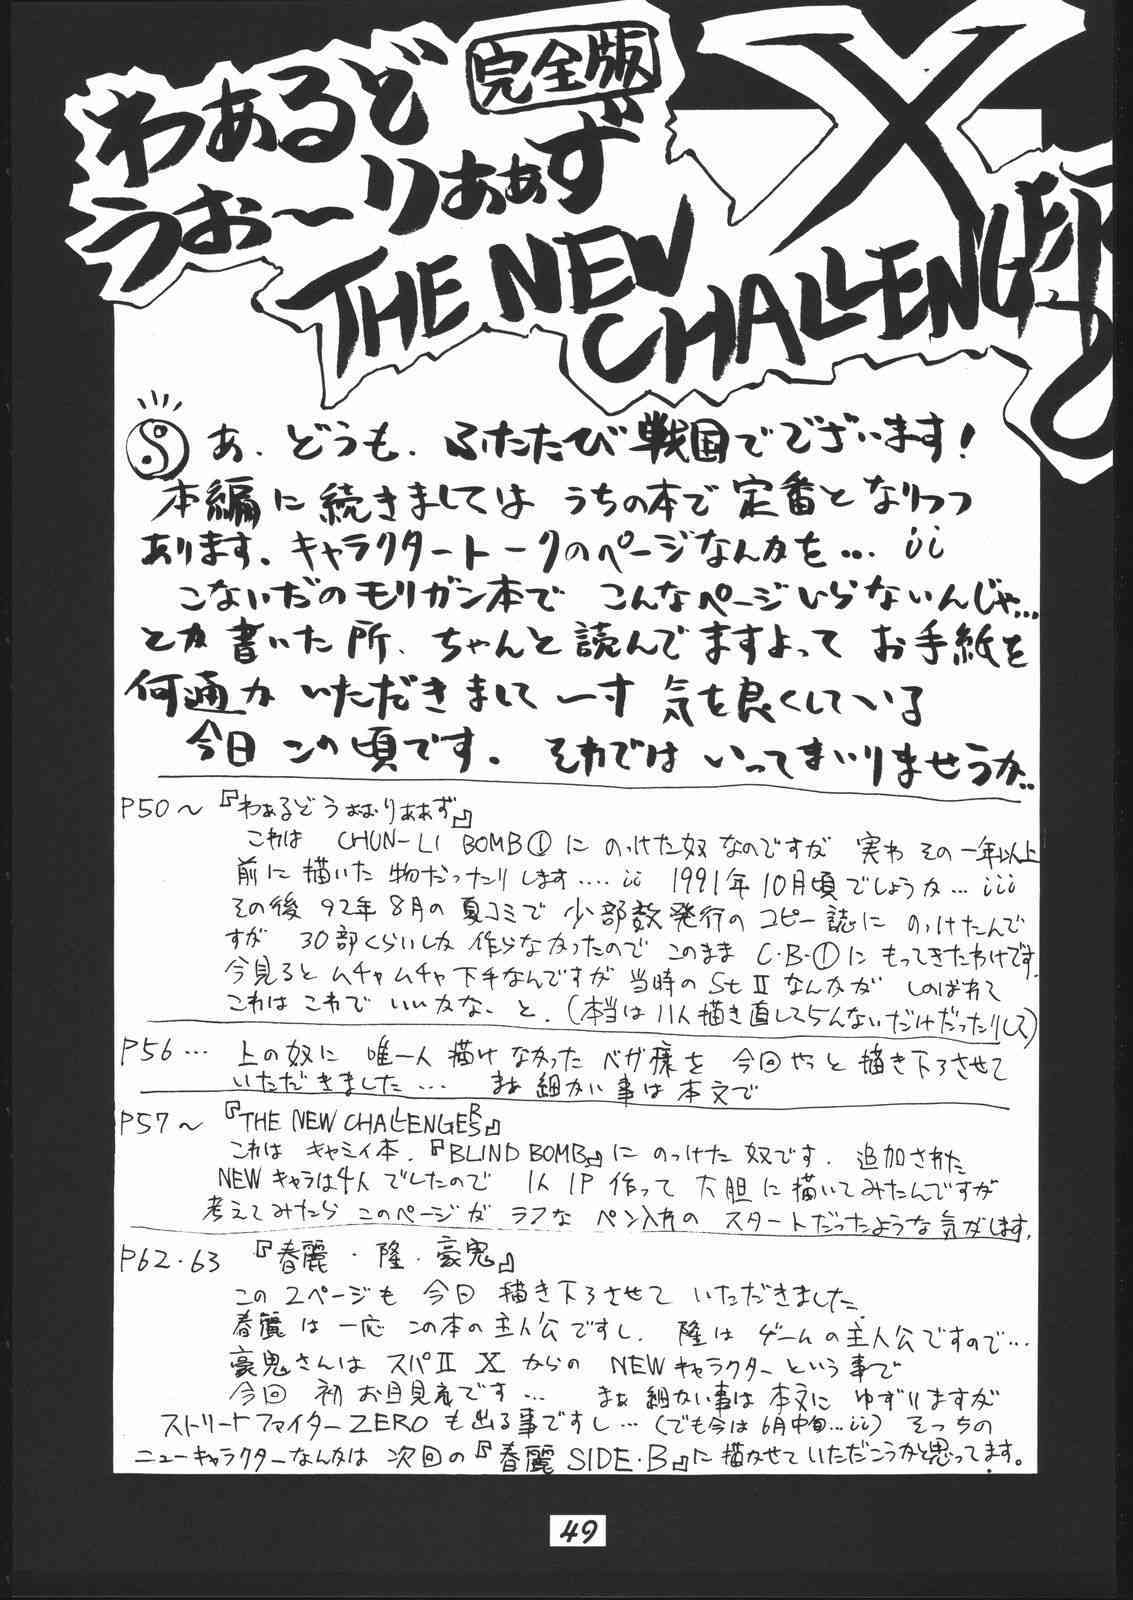 わぁるど
うお〜りあぁず
完全版
X
THE NEW
CHALLENGER
あ、どうも、ふたたび戦国でございます！
本編に続きましては うちの本で定番となりつつ
あります、キャラクタートークのページなんかを… ii
こないだのモリガン本で こんなページいらないんじゃ…
とか書いた所、ちゃんと読んでますよって お手紙を
何通か いただきまして 一寸 気を良くしている
今日この頃です。 それでは いってまいりませうか..
P50〜『わぁるどうぉおりあぁず』
これは CHUN-LI BOMB①に のっけた奴なのですが 実わ その一年以上
前に描いた物だったりします‥‥ii 1991年10月頃でしょうか…iii
その後 92年8月の夏コミで 少部数発行の コピー誌に のっけたんで
すが 30部くらいしか 作らなかったので このまま C・B・①に もってきたわけです。
今見ると ムチャムチャ下手なんですが 当時の StⅡ なんかが しのばれて
これは これで いいかな、と。(本当は 11人描き直してらんないだけだったりして)
P56… 上の奴に 唯一人 描けなかった ベガ様を 今回やっと描き下ろさせて
いただきました… まぁ 細かい事は 本文で
P57〜『THE NEW CHALLENGERS』
これは キャミィ本、『BLIND BOMB』に のっけた 奴です。 追加された
NEWキャラは4人でしたので 1人1P 作って 大胆に描いてみたんですが
考えてみたら このページが ラフな ペン入れの スタートだったような気がします。
P62・63 『春麗・隆・豪鬼』
この2ページも 今回 描き下ろさせて いただきました。
春麗は一応 この本の主人公ですし、隆は ゲームの主人公ですので…
豪鬼さんは スパⅡ X からの NEWキャラクターという事で
今回 初お目見えです… まぁ 細かい事は 本文に ゆずりますが
ストリートファイターZEROも出る事ですし…(でも今は6月中旬…ii) そっちの
ニューキャラクターなんかは 次回の『春麗SIDE・B』に描かせていただこうかと思ってます。
49